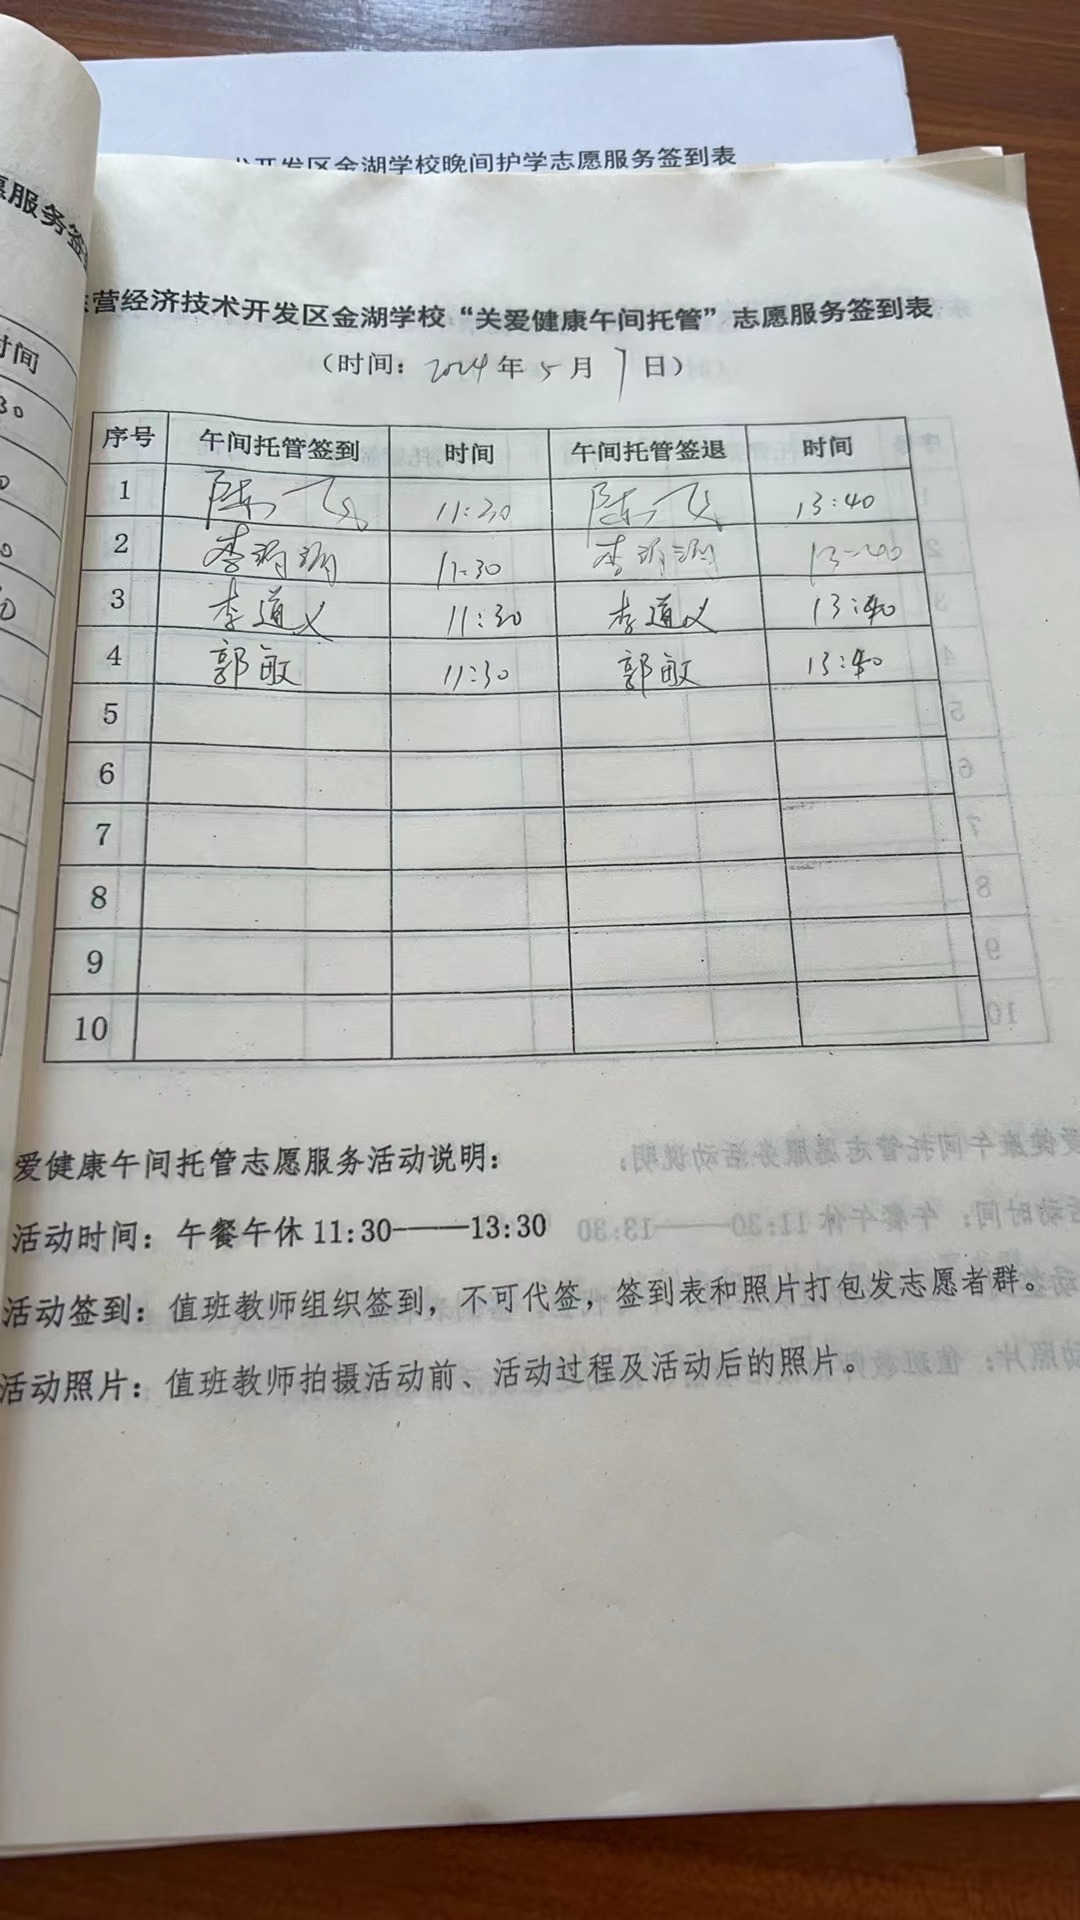 术开发区金湖学校晚间护学志愿服务签到表
愿服务签
时间
营经济技术开发区金湖学校“关爱健康午间托管”志愿服务签到表
（时间：2024年5月7日）
序号 午间托管签到 时间 午间托管签退 时间
1 陈飞 11:30 陈飞 13:40
2 李娟娟 11:30 李娟娟
3 李道义 11:30 李道义 13:40
4 郭敏 11:30 郭敏 13:40
5
6
7
8
9
10
爱健康午间托管志愿服务活动说明：
活动时间：午餐午休11:30——13:30
活动签到：值班教师组织签到，不可代签，签到表和照片打包发志愿者群。
活动照片：值班教师拍摄活动前、活动过程及活动后的照片。